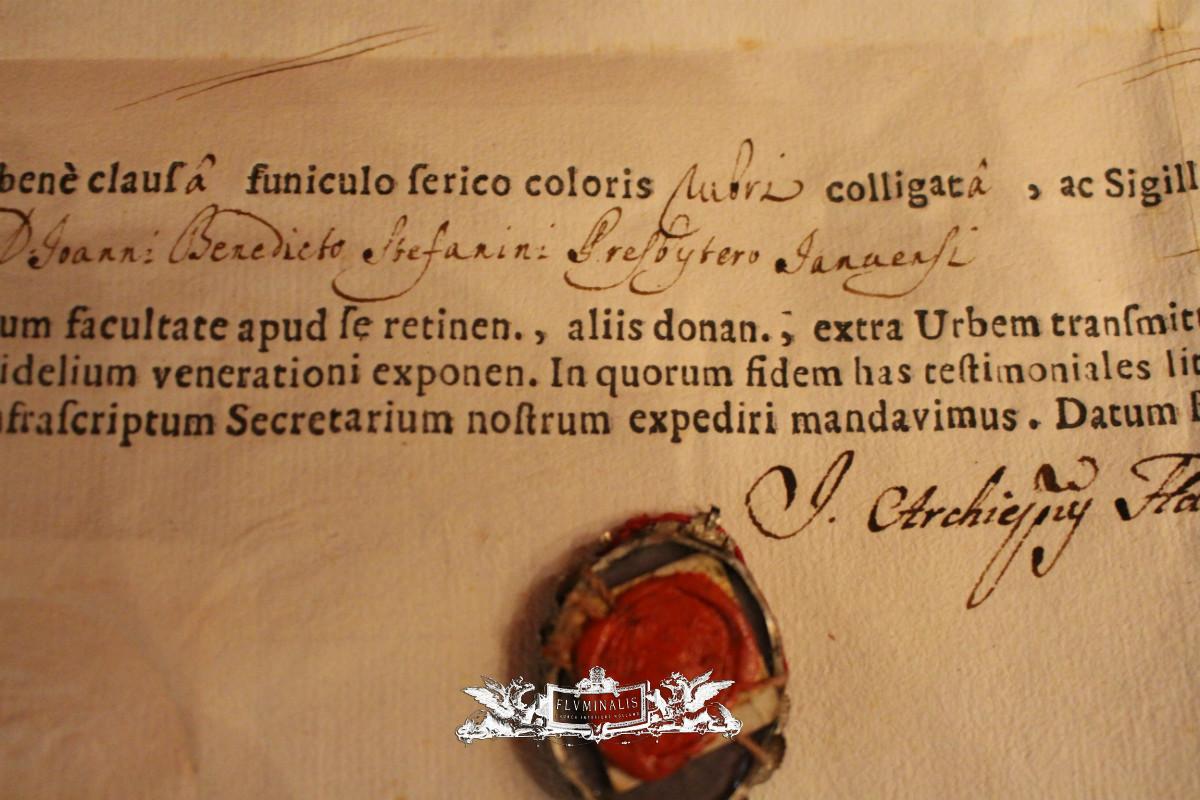 benè clausâ funiculo serico coloris rubri colligatâ , ac Sigill
D. Joanni Benedicto Stefanini Presbytero Januensi
um facultate apud se retinen. , aliis donan. ; extra Urbem transmitt
idelium venerationi exponen. In quorum fidem has testimoniales lit
nfrascriptum Secretarium nostrum expediri mandavimus . Datum
J. Archiepus
FLVMINALIS